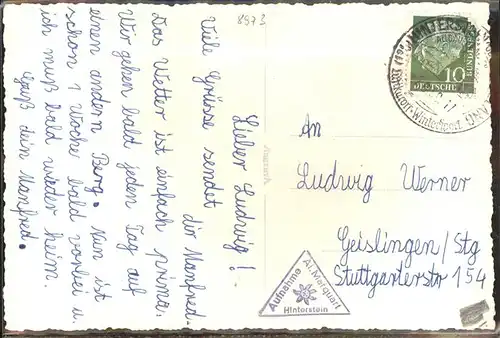 8973
Lieber Ludwig!
Viele Grüsse sendet
dir Manfred.
Das Wetter ist einfach prima.
Wir gehen bald jeden Tag auf
einen andern Berg. Nun ist
schon 1 Woche bald vorbei u.
ich muß bald wieder heim.
Gruß dein Manfred.
An
Ludwig Werner
Geislingen/Stg
Stuttgarterstr 154
10
DEUTSCHE
BUNDESPOST
Wintersport
Aufnahme
Al. Marquart
Hinterstein